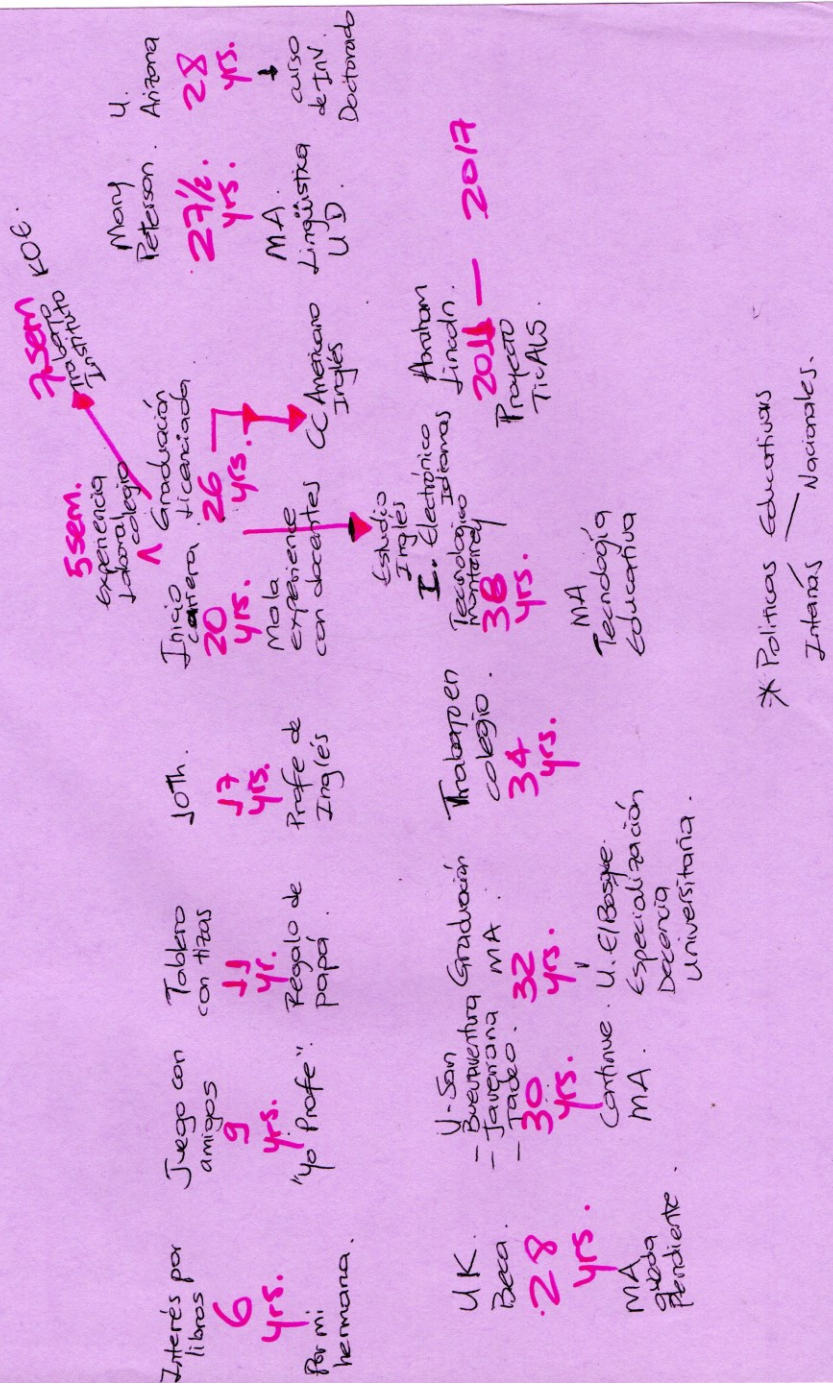 Interés por
libros
6
yrs.
Por mi
hermana.
Juego con
amigos
9
yrs.
"Yo Profe".
Tablero
con tizas
11
yr.
Regalo de
papá.
10th.
17
yrs.
Profe de
Inglés
5 sem.
experiencia
Laboral
colegio
Inicio
carrera.
20
yrs.
Mala
experience
con docentes
Estudio
Inglés
I. Electrónico
Idiomas
7. sem
Trabajo
Instituto KOE.
Graduación
Licenciada
26
yrs.
CC Americano
Inglés
Mary
Peterson.
27 1/2.
yrs.
MA
Lingüística
UD.
U.
Arizona
28
yrs.
curso
de INV.
Doctorado
UK.
Beca.
28
yrs.
MA
queda
Pendiente.
U - San
- Buenaventura
- Javeriana
- Tadeo.
30
yrs.
Continue
MA.
Graduación
MA.
32
yrs.
U. El Bosque.
Especialización
Docencia
Universitaria.
Trabajo en
colegio.
34
yrs.
Tecnológico
Monterrey
38
yrs.
MA
Tecnología
Educativa
Abraham
Lincoln.
2011 — 2017
Proyecto
TicALS.
* Políticas Educativas
Internas — Nacionales.